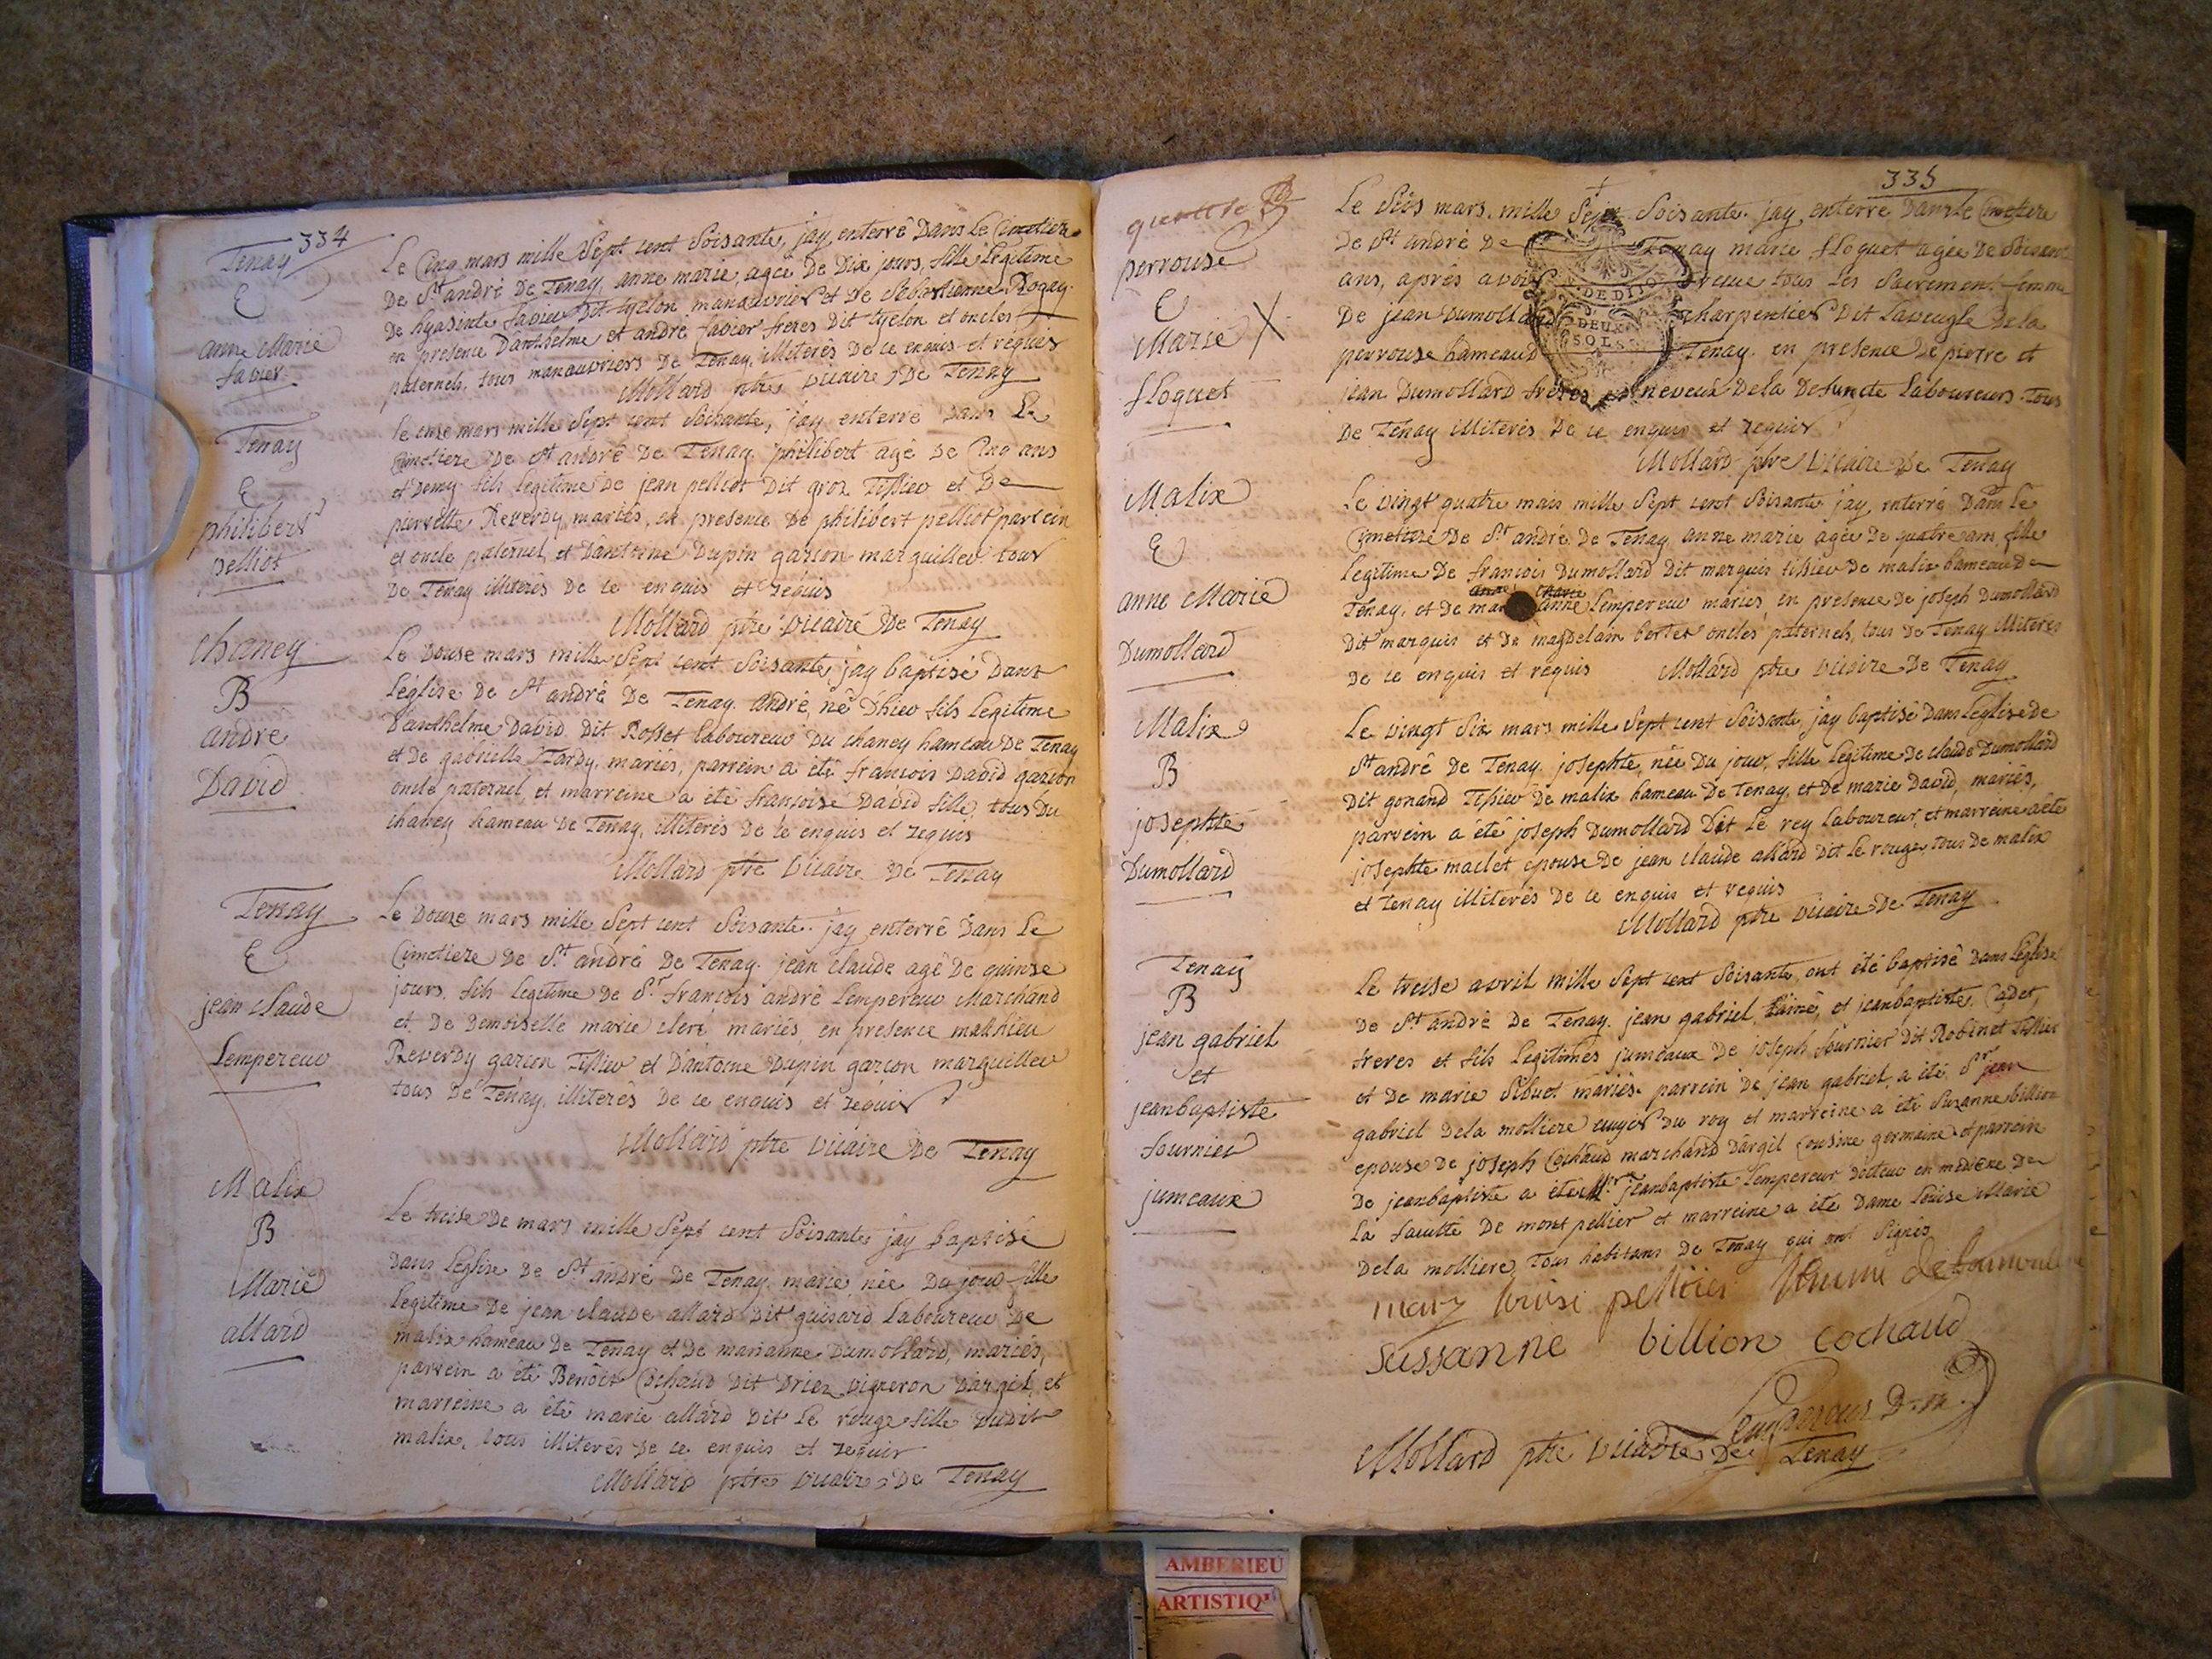 334
Tenay
E
anne Marie
favier
Le Cinq mars mille Sept cent Soisante, jay enterré Dans Le Cimetiere
De St andré De Tenay, anne marie, agée De Dix jours, fille Legitime
De hyasinte favier Dit tyelon manauvrier et De Sebastienne Rogay
en presence Danthelme et andré favier freres Dit tyelon et oncles
paternels, tous manauvriers De Tenay, illiterés De ce enquis et requis
Mollard ptre vicaire De Tenay
Tenay
E
philibert
pelliot
Le onze mars mille Sept cent Soisante, jay enterré Dans Le
Cimetiere De St andré De Tenay philibert agé De Cinq ans
et Demy fils Legitime De jean pelliot Dit groz Tissieu et De
pierrette Reverdy mariés, en presence De philibert pelliot parrein
et oncle paternel et Dantoine Dupin garçon marguilleu tous
De Tenay illiterés De ce enquis et requis
Mollard ptre vicaire De Tenay
Chaney
B
andré
David
Le Douse mars mille Sept cent Soisante, jay baptisé Dans
Léglise De St andré De Tenay. André, né Dhieu fils Legitime
Danthelme David Dit Rosset Laboureur Du chaney hameau De Tenay
et De gabrielle Tardy, mariés, parrein a été francois David garçon
oncle paternel, et marreine a été françoise David fille, tous Du
chaney hameau De Tenay, illiterés De ce enquis et requis
Mollard ptre vicaire De Tenay
Tenay
E
jean claude
Lempereur
Le Douze mars mille Sept cent Soisante. jay enterré Dans Le
Cimetiere De St andré De Tenay. jean claude agé De quinze
jours, fils Legitime De Sr françois andré Lempereur Marchand
et De Demoiselle marie clerc mariés, en presence mathieu
Reverdy garçon Tissieu et Dantoine Dupin garçon marguilleu
tous De Tenay, illiterés De ce enquis et requis
Mollard ptre vicaire De Tenay
Malix
B
Marie
allard
Le treise De mars mille Sept cent Soisante jay baptisé
Dans Leglise De St andré De Tenay marie, née Du jour fille
Legitime De jean claude allard Dit guisard Laboureur De
malix hameau De Tenay et De marianne Dumollard, mariés,
parrein a été Benoit Cochaud Dit Driez vigneron Dargil, et
marreine a été marie allard Dit Le rouge fille Dudit
malix, tous illiterés De ce enquis et requis
Mollard ptre vicaire De Tenay
335
perrouse
E
Marie X
floquet
Le Séis mars. mille Sept Soisante. jay enterré Dans Le Cimetiere
De St andré De Tenay marie floquet agée De Soisante
ans, aprés avoir recue tous Les Sacrement femme
De jean Dumollard charpentier Dit Laveugle De la
perrouse hameaud Tenay. en presence De pierre et
jean Dumollard freres et neveux De la Defuncte Laboureurs. tous
De Tenay illiterés De ce enquis et requis
Mollard ptre vicaire De Tenay
DE DIJON
DEUX
SOLS
Malix
E
anne Marie
Dumollard
Le vingt quatre mars mille Sept cent Soisante jay enterré Dans Le
Cimetiere De St andré De Tenay anne marie agée De quatre ans, fille
Legitime De francois Dumollard Dit marquis tissieu De malix hameau De
Tenay, et De anne Lempereur mariés, en presence De joseph Dumollard
Dit marquis et De magdelain bertet oncles paternels, tous De Tenay illiterés
De ce enquis et requis Mollard ptre vicaire De Tenay
Malix
B
josephte
Dumollard
Le vingt Six mars mille Sept cent Soisante, jay baptisé Dans Leglise De
St andré De Tenay. josephte, née Du jour, fille Legitime De claude Dumollard
Dit gonand Tissieu De malix hameau De Tenay, et De marie David, mariés,
parrein a été joseph Dumollard Dit Le rey Laboureur, et marreine a été
josephte maclet epouse De jean claude allard Dit Le rouge, tous De malix
et tenay illiterés De ce enquis et requis
Mollard ptre vicaire De Tenay
Tenay
B
jean gabriel
et
jeanbaptiste
fournier
jumeaux
Le treise avril mille Sept cent Soisante, ont été baptisé Dans Léglise
De St andré De Tenay. jean gabriel, Lainé, et jeanbaptiste, Cadet,
freres et fils Legitimes jumeaux De joseph fournier Dit Robinet Tissieu
et De marie Sibuet mariés. parrein De jean gabriel, a été Sr jean
gabriel Dela molliere euyer Du roy et marreine a été Suzanne billion
epouse De joseph Cochaud marchand Dargil Cousine germaine et parrein
De jeanbaptiste a été jeanbaptiste Lempereur Docteur en medicine De
La faculté De montpellier et marreine a été Dame Louise Marie
Dela molliere, Tous habitans De Tenay qui ont Signés
mary louise pellicier
Sussanne billion cochaud
Lempereur D. M.
Mollard ptre vicaire De Tenay
AMBERIEU
ARTISTIQU